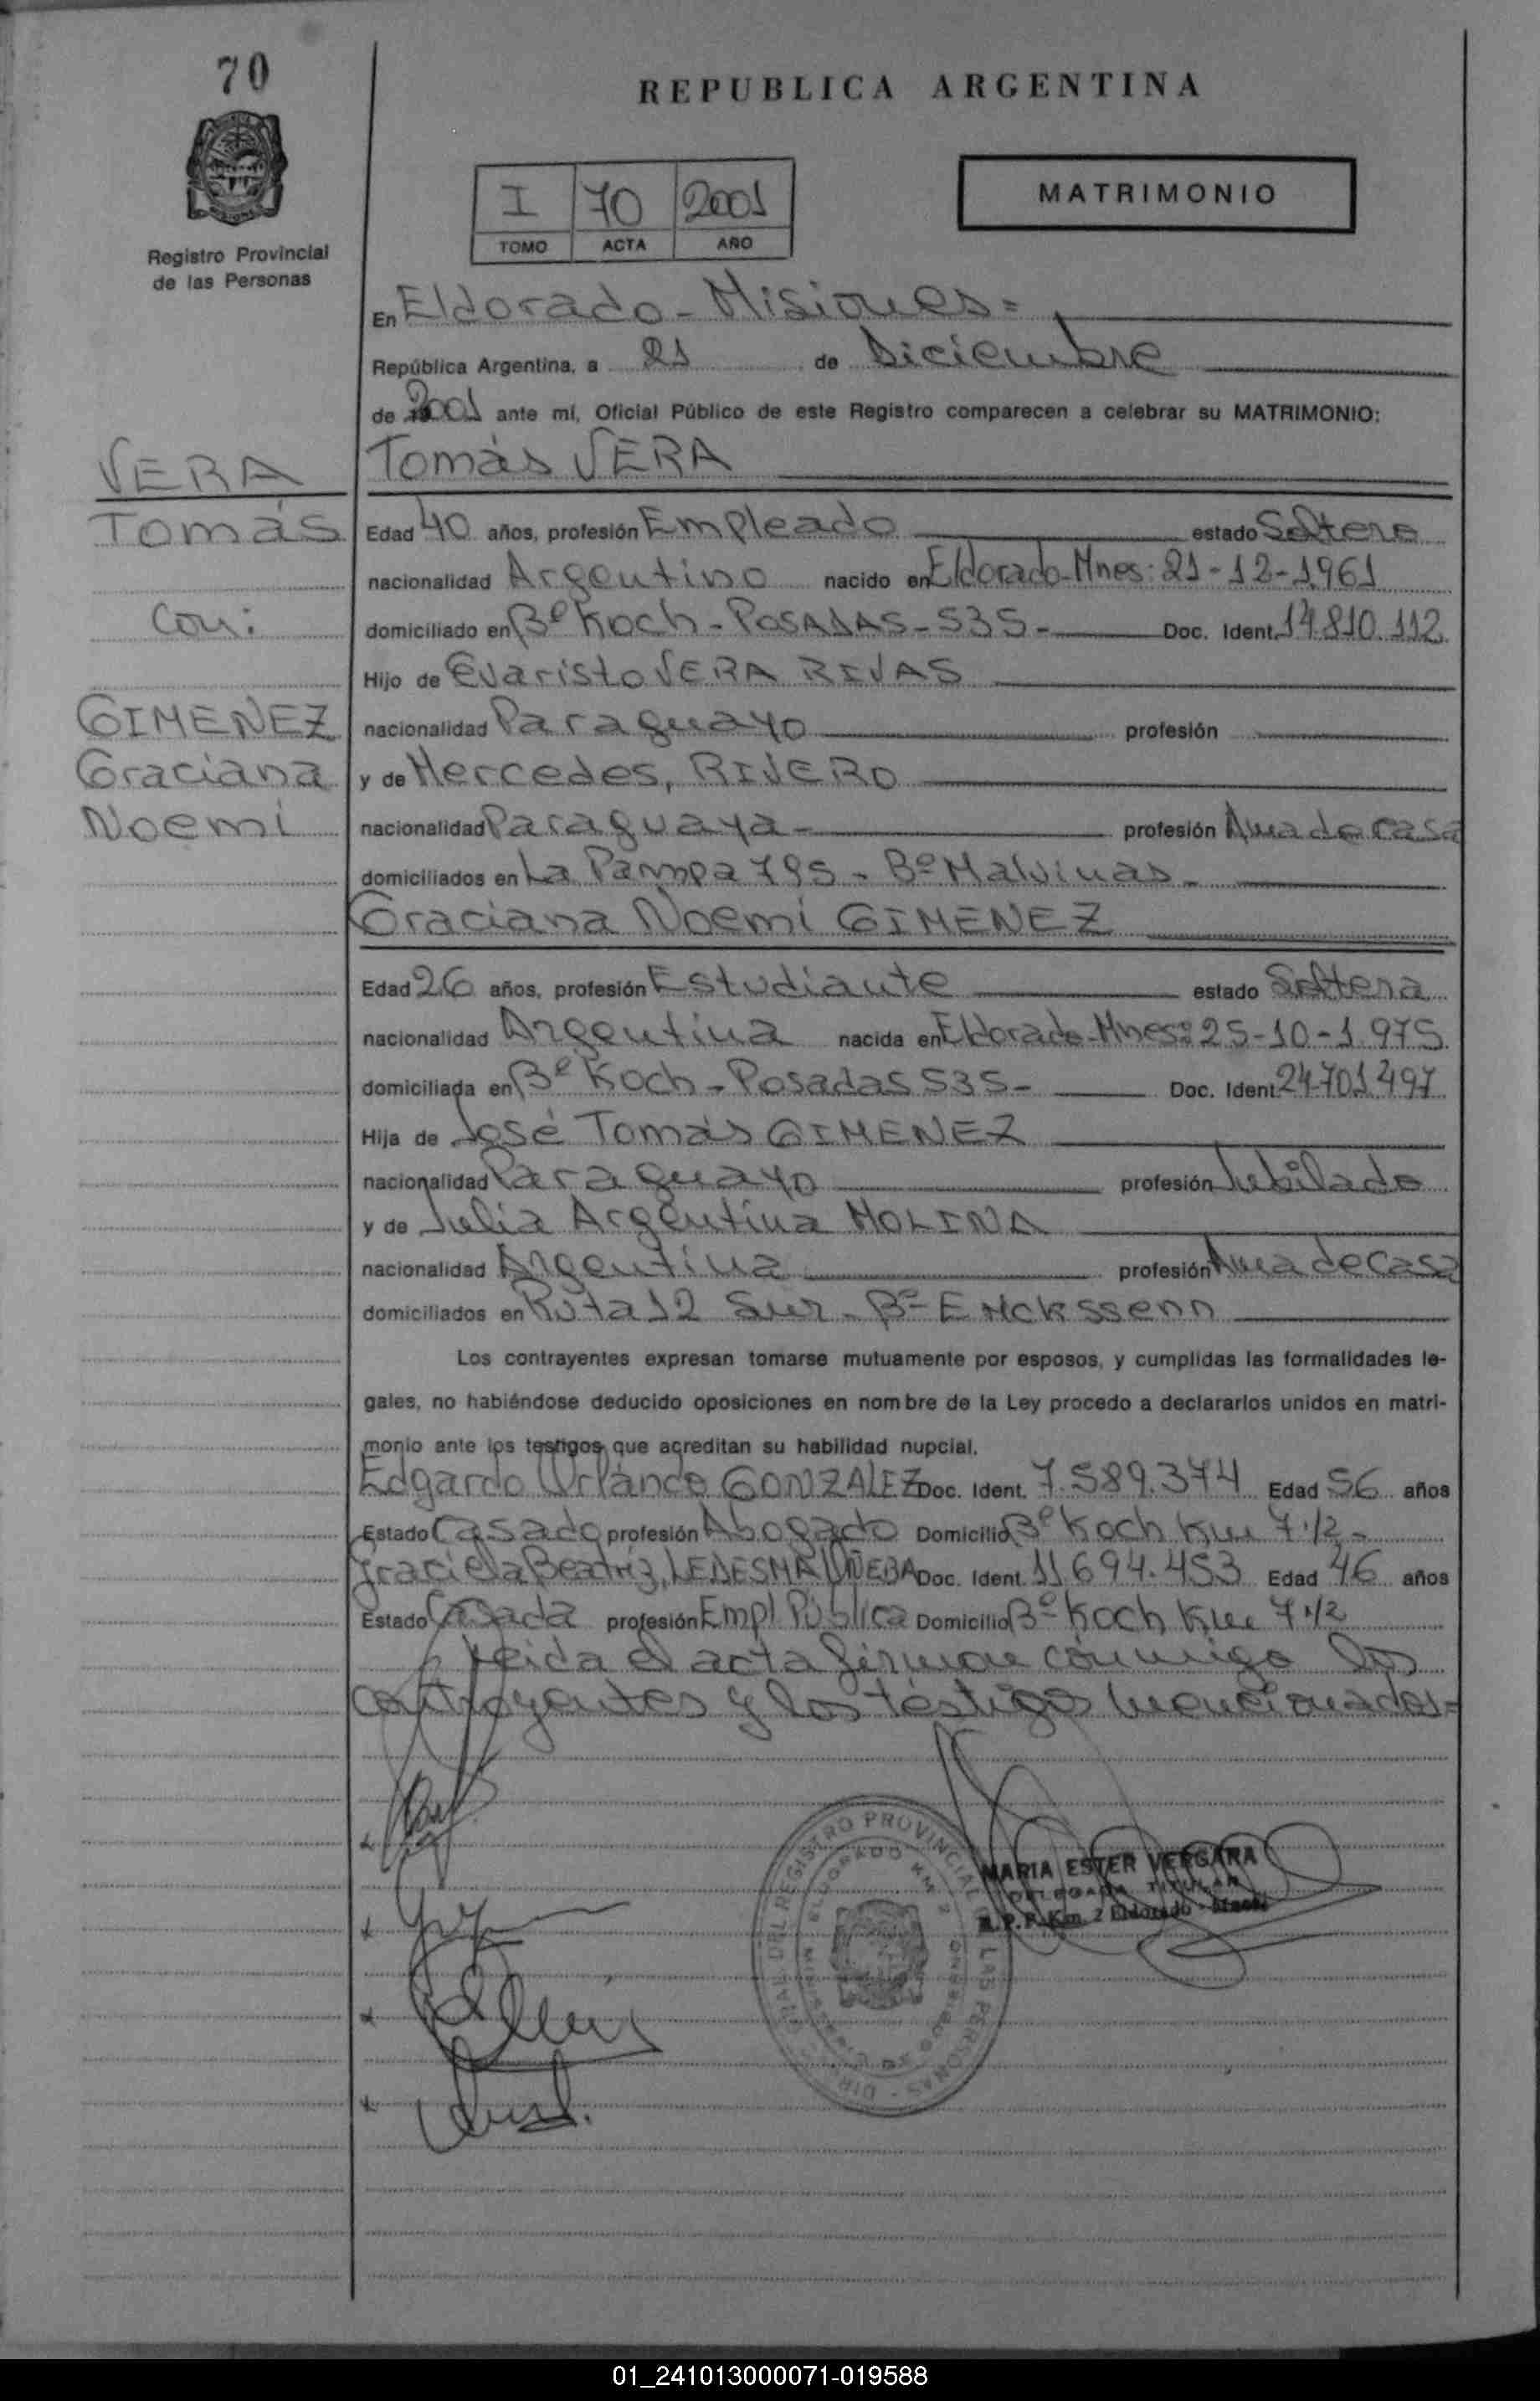 70
REPUBLICA ARGENTINA
I 70 2001
TOMO ACTA AÑO
MATRIMONIO
Registro Provincial
de las Personas
En Eldorado - Misiones =
República Argentina, a 21 de Diciembre
de 2001 ante mí, Oficial Público de este Registro comparecen a celebrar su MATRIMONIO:
VERA
Tomás
Con:
GIMENEZ
Graciana
Noemí
Tomás VERA
Edad 40 años, profesión Empleado estado Soltero
nacionalidad Argentino nacido en Eldorado-Mnes: 21-12-1961
domiciliado en Bº Koch - POSADAS - 535 - Doc. Ident. 14.810.112
Hijo de Evaristo VERA RIVAS
nacionalidad Paraguayo profesión
y de Mercedes, RIVERO
nacionalidad Paraguaya - profesión Ama de casa
domiciliados en La Pampa 795 - Bº Malvinas -
Graciana Noemí GIMENEZ
Edad 26 años, profesión Estudiante estado Soltera
nacionalidad Argentina nacida en Eldorado-Mnes: 25-10-1.975
domiciliada en Bº Koch - Posadas 535 - Doc. Ident. 24.701.497
Hija de José Tomás GIMENEZ
nacionalidad Paraguayo profesión Jubilado
y de Julia Argentina MOLINA
nacionalidad Argentina profesión Ama de Casa
domiciliados en Ruta 12 Sur - Bº
Los contrayentes expresan tomarse mutuamente por esposos, y cumplidas las formalidades le-
gales, no habiéndose deducido oposiciones en nombre de la Ley procedo a declararlos unidos en matri-
monio ante los testigos que acreditan su habilidad nupcial.
Edgardo Orlando GONZALEZ Doc. Ident. 7.589.374 Edad 56 años
Estado Casado profesión Abogado Domicilio Bº Koch Km 7 1/2 -
Graciela Beatríz, LEDESMA Doc. Ident. 11.694.453 Edad 46 años
Estado Casada profesión Empl. Pública Domicilio Bº Koch Km 7 1/2
Leida el acta firman conmigo los
contrayentes y los testigos mencionados =
MARIA ESTER VERGARA
DELEGADA TITULAR
R.P.P. Km. 2 Eldorado - Mnes.
DEL REGISTRO PROVINCIAL LAS PERSONAS
ELDORADO KM 2
01_241013000071-019588